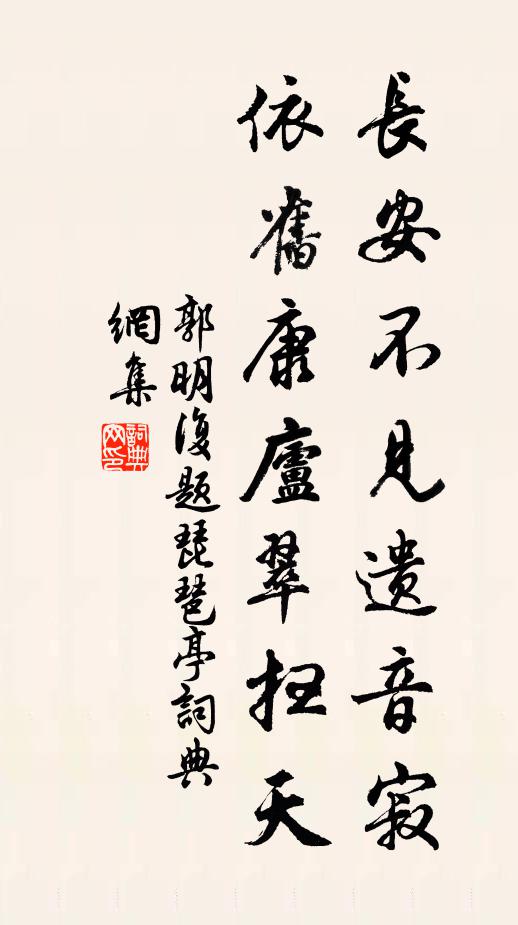 長安不見遺音寂
依舊康廬翠扫天
郭明復題琵琶亭詞典
網集
詞典
网印